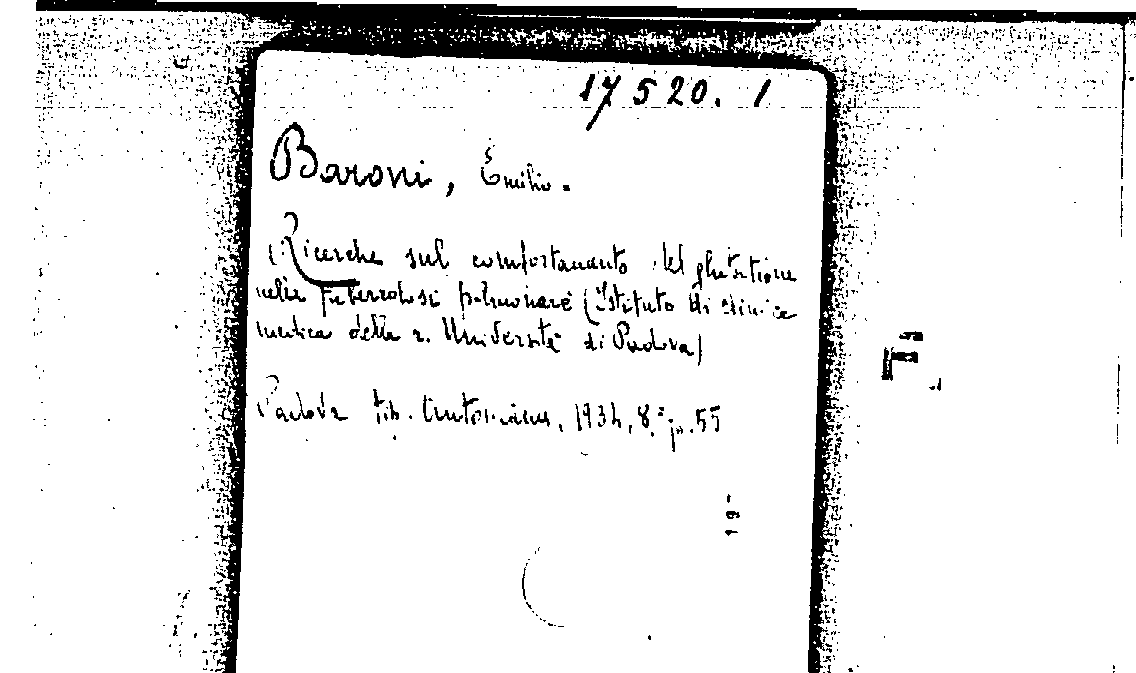 17520. 1
Baroni, Emilio.
Ricerche sul comportamento del glutatione
nella tubercolosi polmonare (Istituto di clinica
medica della r. Università di Padova)
Padova tip. Antoniana, 1934, 8.° p. 55